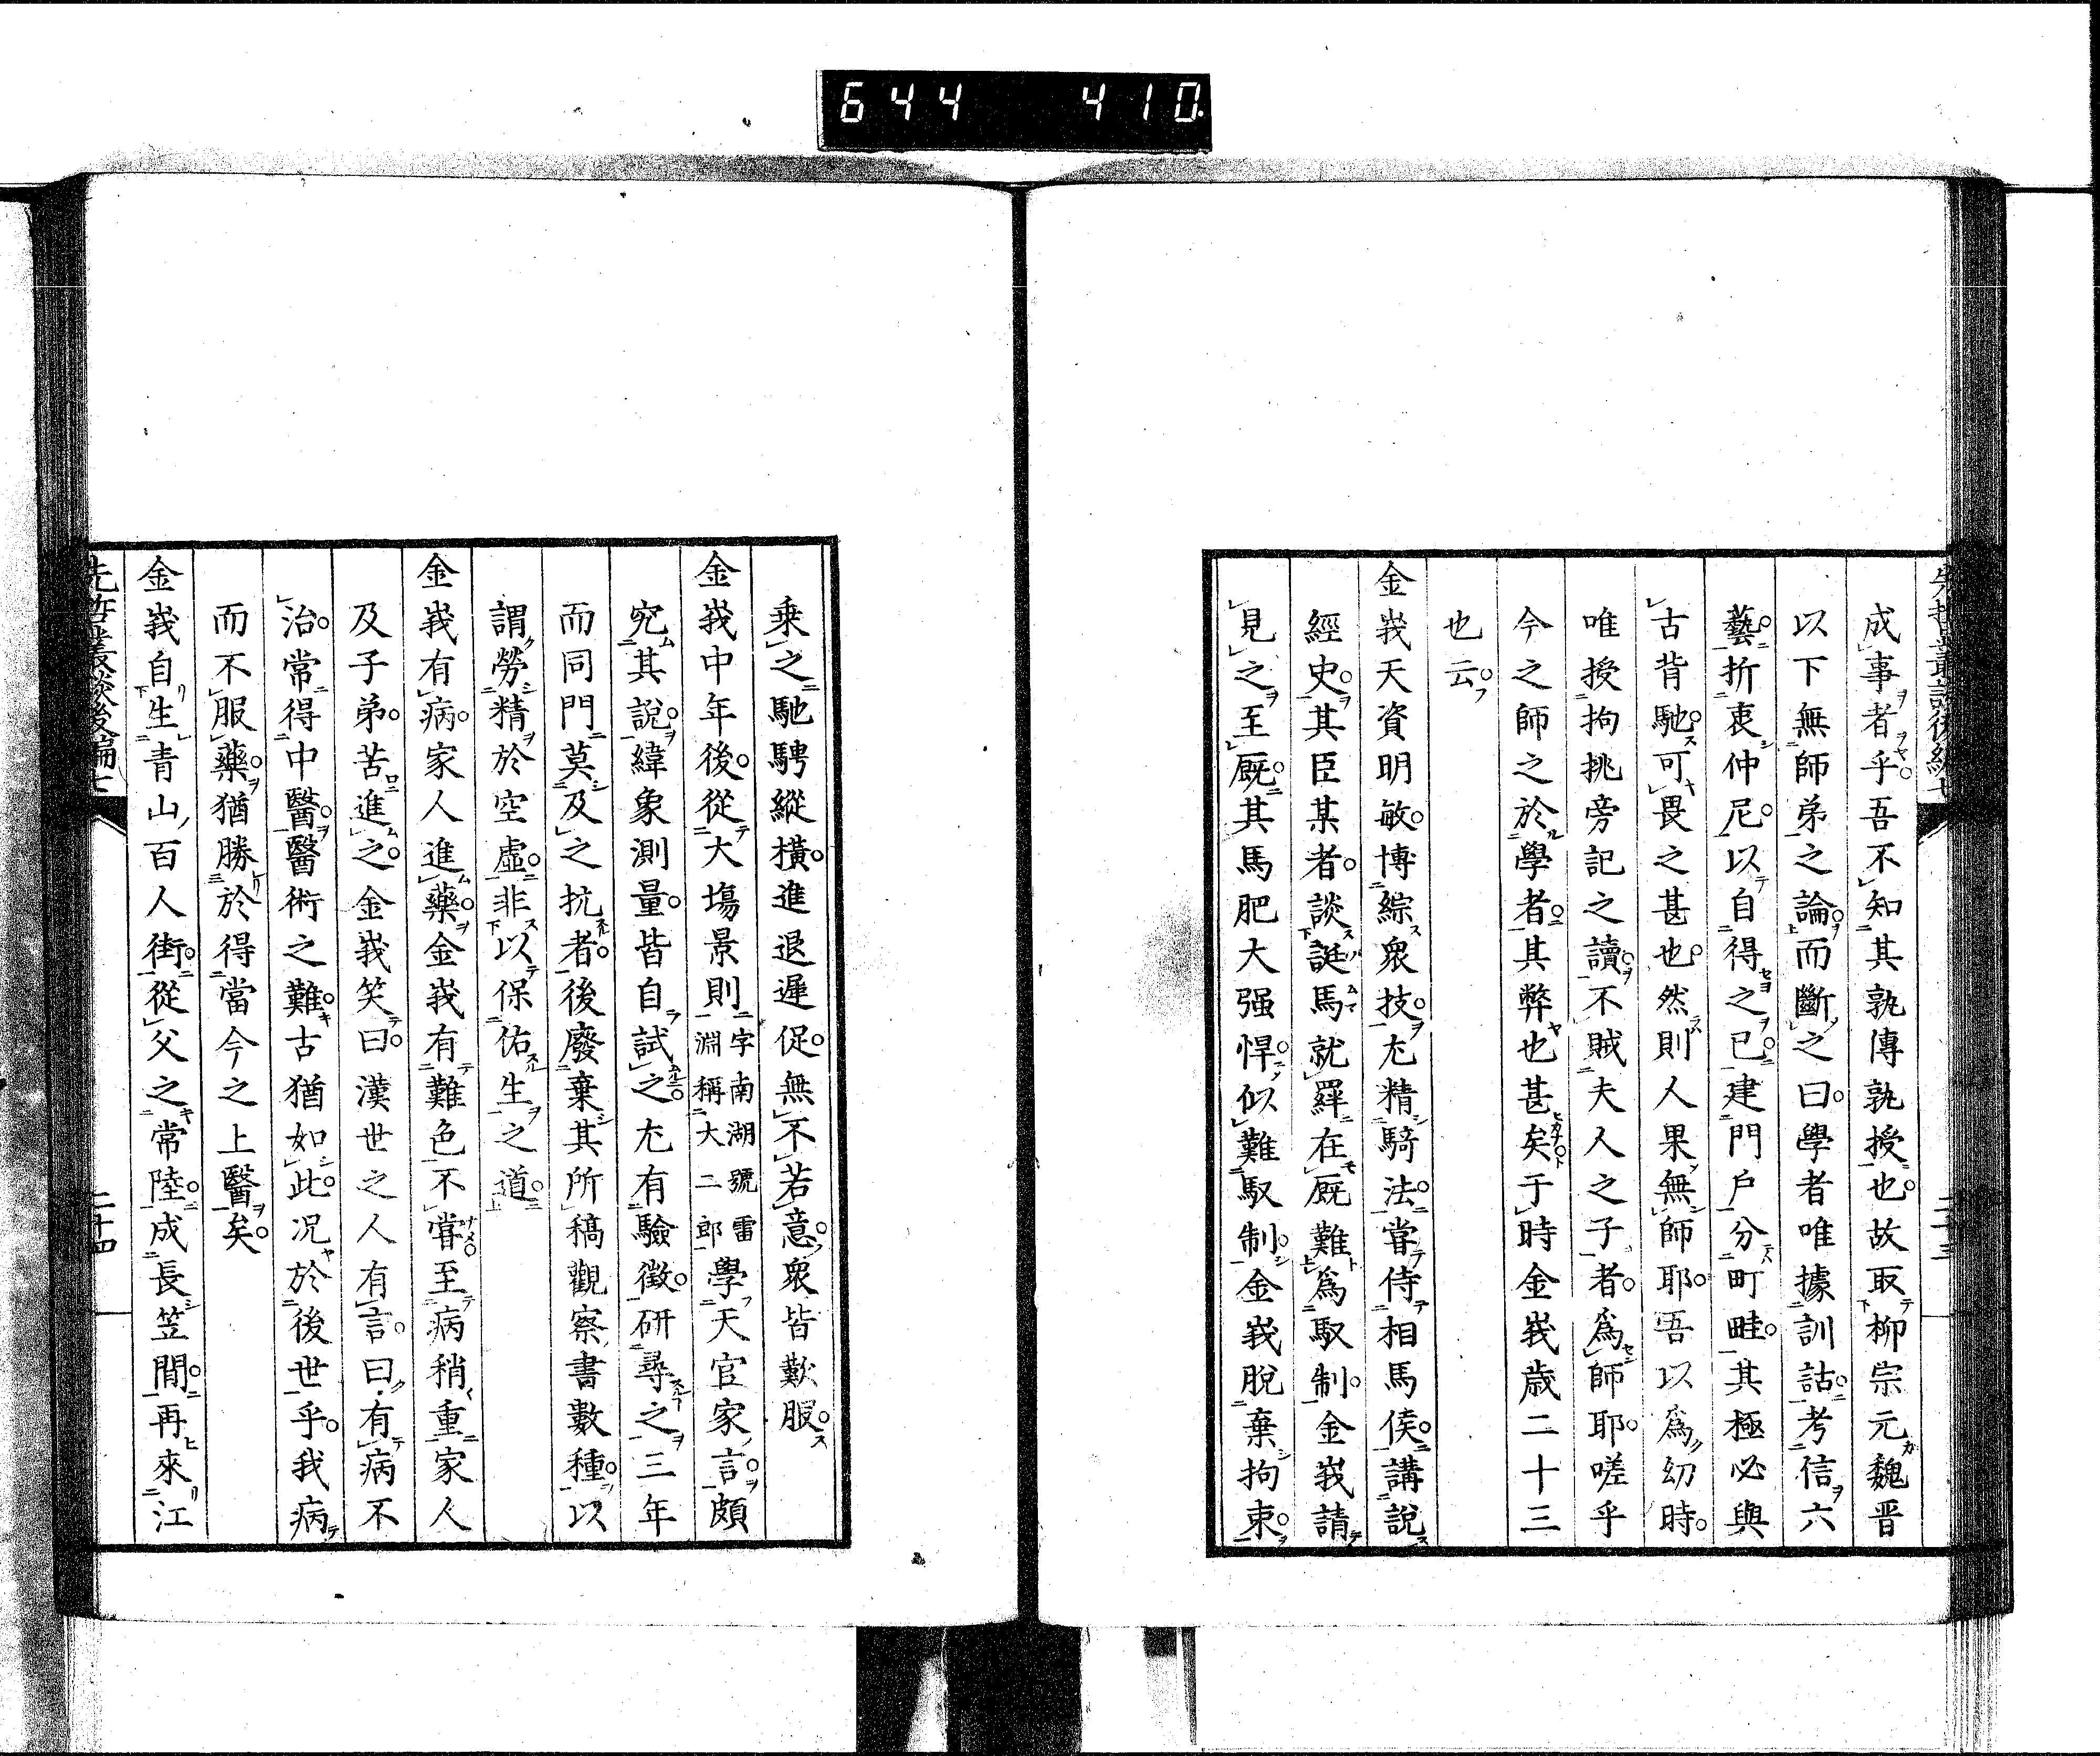 644 410
先哲叢談後編七
二十三
成事者乎吾不知其孰傳孰授也故取柳宗元魏晋
以下無師弟之論而斷之曰學者唯據訓詁考信六
藝折衷仲尼以自得之已建門戶分町畦其極必與
古背馳可畏之甚也然則人果無師耶吾以爲幼時
唯授拘挑旁記之讀不賊夫人之子者爲師耶嗟乎
今之師之於學者其弊也甚矣于時金峩歳二十三
也云
金峩天資明敏博綜衆技尤精騎法嘗侍相馬侯講說
經史其臣某者談誕馬就羈在厩難爲馭制金峩請
見之至厩其馬肥大强悍似難馭制金峩脫棄拘束
乗之馳騁縱横進退遲促無不若意衆皆歎服
金峩中年後從大塲景則字南湖號雷淵稱大二郎學天官家言頗
究其說緯象測量皆自試之尤有驗徵研尋之三年
而同門莫及之抗者後廢棄其所稿觀察書數種以
謂勞精於空虛非以保佑生之道
金峩有病家人進藥金峩有難色不嘗至病稍重家人
及子弟苦進之金峩笑曰漢世之人有言曰有病不
治常得中醫醫術之難古猶如此况於後世乎我病
而不服藥猶勝於得當今之上醫矣
金峩自生青山百人街從父之常陸成長笠間再來江
先哲叢談後編七
二十四